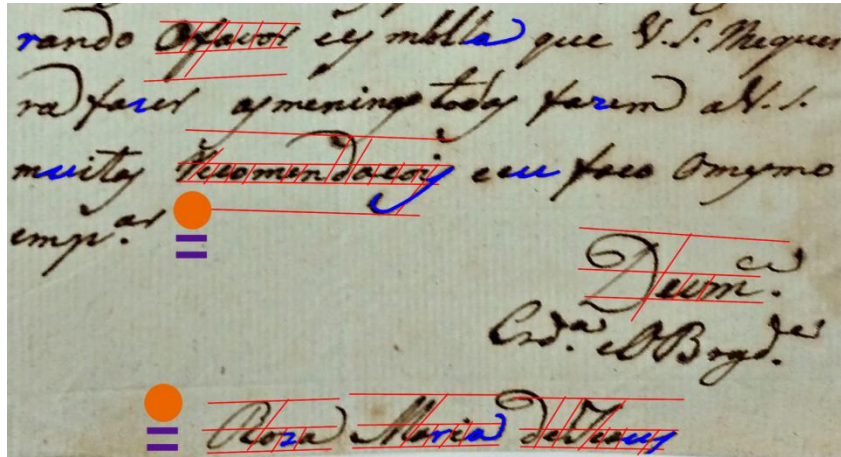 rando O favor ey mblla que V.S. Meques
ra faser as meninas todas fazem a V.S.
muitas Recomendacois e eu faco O mesmo
emp.ar
De V.m.ce
Crd.a e O Brgd.a
Roza Maria de Jesus